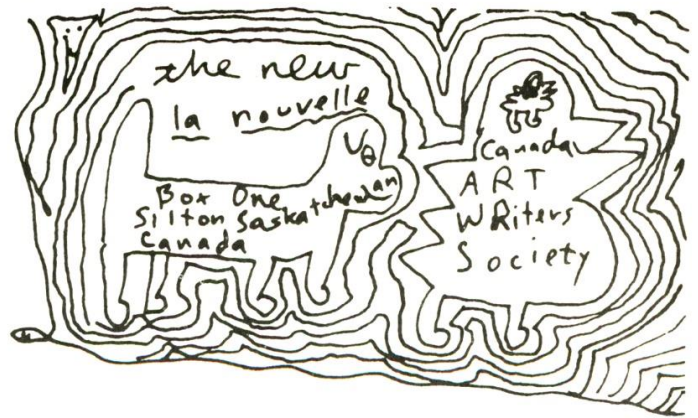 the new
la nouvelle
Box One
Silton Saskatchewan
Canada
Canada
ART
WRiters
Society